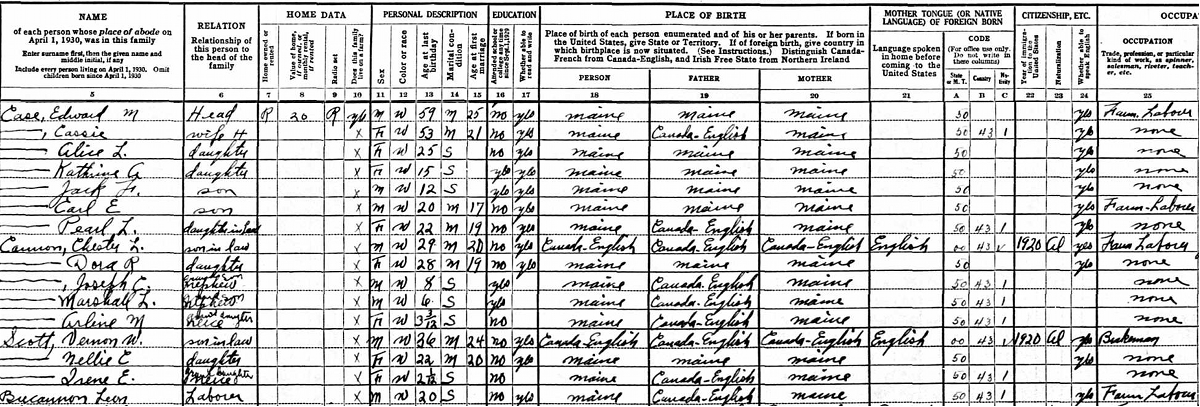 NAME RELATION HOME DATA PERSONAL DESCRIPTION EDUCATION PLACE OF BIRTH MOTHER TONGUE (OR NATIVE LANGUAGE) OF FOREIGN BORN CITIZENSHIP, ETC. OCCUPA
of each person whose place of abode on April 1, 1930, was in this family
Enter surname first, then the given name and middle initial, if any
Include every person living on April 1, 1930. Omit children born since April 1, 1930
Relationship of this person to the head of the family
Home owned or rented
Value of home, if owned, or monthly rental, if rented
Radio set
Does this family live on a farm?
Sex
Color or race
Age at last birthday
Marital condition
Age at first marriage
Attended school or college any time since Sept. 1, 1929
Whether able to read and write
Place of birth of each person enumerated and of his or her parents. If born in the United States, give State or Territory. If of foreign birth, give country in which birthplace is now situated. (See Instructions.) Distinguish Canada-French from Canada-English, and Irish Free State from Northern Ireland
PERSON FATHER MOTHER
Language spoken in home before coming to the United States
CODE
(For office use only. Do not write in these columns)
State or M. T. Country Nativity
Year of immigration to the United States
Naturalization
Whether able to speak English
OCCUPATION
Trade, profession, or particular kind of work, as spinner, salesman, riveter, teacher, etc.
5 6 7 8 9 10 11 12 13 14 15 16 17 18 19 20 21 A B C 22 23 24 25
Case, Edward M Head R 20 R yes M W 59 M 25 no yes Maine Maine Maine 50 yes Farm Labour
, Cassie wife H X F W 53 M 21 no yes Maine Canada-English Maine 50 43 1 yes none
Alice L. daughter X F W 25 S no yes Maine Maine Maine 50 yes none
Kathrine G daughter X F W 15 S yes yes Maine Maine Maine 50 yes none
Jack F. son X M W 12 S yes yes Maine Maine Maine 50 yes none
Earl E son X M W 20 M 17 no yes Maine Maine Maine 50 yes Farm-Laborer
Pearl L. daughter in law X F W 22 M 19 no yes Maine Canada-English Maine 50 43 1 yes none
Cannon, Chester L. son in law X M W 29 M 20 no yes Canada-English Canada-English Canada-English English 00 43 V 1920 al yes Farm Laborer
Dora R daughter X F W 28 M 19 no yes Maine Maine Maine 50 yes none
, Joseph E, grandson nephew X M W 8 S yes Maine Canada-English Maine 50 43 1 none
Marshall L. nephew X M W 6 S yes Maine Canada-English Maine 50 43 1 none
Arline M grand daughter neice X F W 3 3/12 S no Maine Canada-English Maine 50 43 1 none
Scott, Vernon W. son in law X M W 26 M 24 no yes Canada-English Canada-English Canada-English English 00 43 V 1920 al yes
Nellie E daughter X F W 22 M 20 no yes Maine Maine Maine 50 yes none
Irene E. grand daughter neice X F W S no Maine Canada-English Maine 50 43 1 none
Bucannon Leon Laborer X M W 20 S no yes Maine Canada-English Maine 50 43 1 yes Farm Laborer